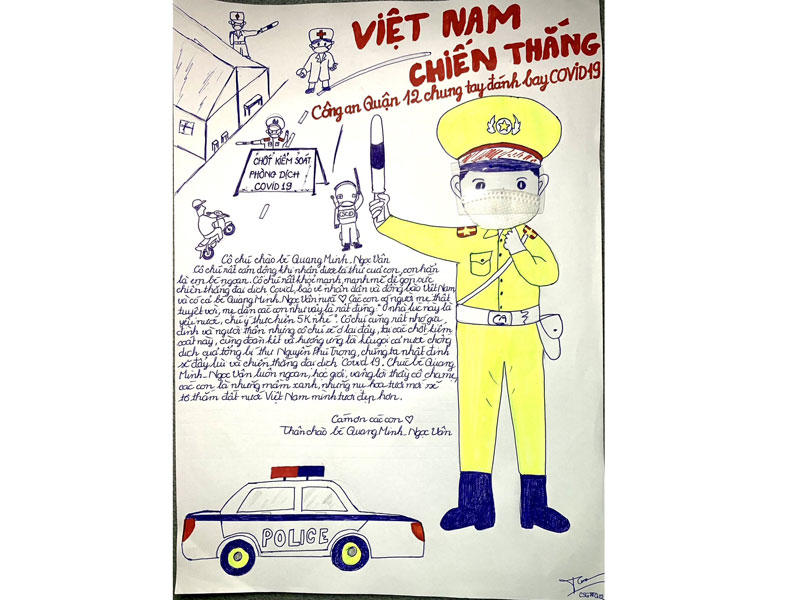 VIỆT NAM
CHIẾN THẮNG
Công an Quận 12 chung tay đánh bay COVID19
CHỐT KIỂM SOÁT
PHÒNG DỊCH
COVID 19
CSCĐ
Cô chú chào bé Quang Minh_Ngọc Vân
Cô chú rất cảm động khi nhận được lá thư của con, con hẳn
là em bé ngoan. Cô chú rất khỏe mạnh, mạnh mẽ để góp sức
chiến thắng đại dịch Covid, bảo vệ nhân dân và đồng bào Việt Nam
và có cả bé Quang Minh_Ngọc Vân nữa ♡ Các con có người mẹ thật
tuyệt vời, mẹ dặn các con như vậy là rất đúng: "Ở nhà lúc này là
yêu nước, chú ý thực hiện 5K nhé". Cô chú cũng rất nhớ gia
đình và người thân nhưng cô chú sẽ ở lại đây, tại các chốt kiểm
soát này, cùng đoàn kết và hưởng ứng lời kêu gọi cả nước chống
dịch của tổng bí thư Nguyễn Phú Trọng, chúng ta nhất định
sẽ đẩy lùi và chiến thắng đại dịch Covid 19. Chúc bé Quang
Minh_Ngọc Vân luôn ngoan, học giỏi, vâng lời thầy cô cha mẹ,
các con là những mầm xanh, những nụ hoa tươi mới sẽ
tô thắm đất nước Việt Nam mình tươi đẹp hơn.
Cảm ơn các con ♡
Thân chào bé Quang Minh_Ngọc Vân
POLICE